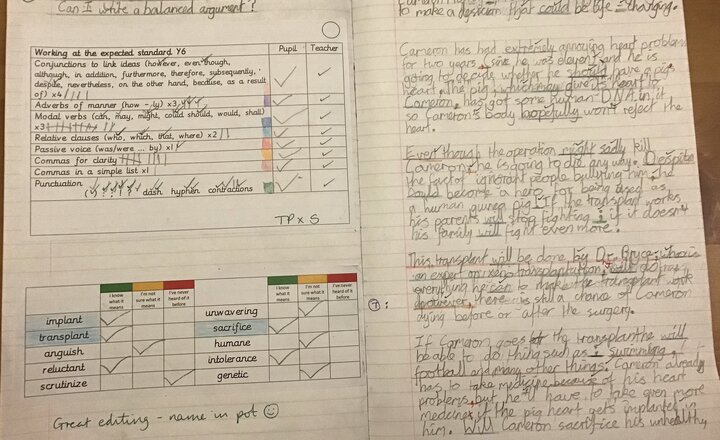 Can I write a balanced argument?
Working at the expected standard Y6 Pupil Teacher
Conjunctions to link ideas (however, even though,
although, in addition, furthermore, therefore, subsequently,
despite, nevertheless, on the other hand, because, as a result
of) x4
Adverbs of manner (how -ly) x3
Modal verbs (can, may, might, could should, would, shall)
x3
Relative clauses (who, which, that, where) x2
Passive voice (was/were ... by) x1
Commas for clarity
Commas in a simple list x1
Punctuation
dash hyphen contractions
TP x S
I know what it means I'm not sure what it means I've never heard of it before
I know what it means I'm not sure what it means I've never heard of it before
implant unwavering
transplant sacrifice
anguish humane
reluctant intolerance
scrutinize genetic
Great editing - name in pot
to make a desicion that could be life-changing.
Cameron has had extremely annoying heart problems
for two years, since he was eleven and he is
going to decide whether he should have a pigs
heart. The pig, which may give its heart to
Cameron, has got some human DNA in it
so Cameron's body hopefully won't reject the
heart.
Even though the operation might sadly kill
Cameron, he is going to die any way. Despite
the fact of ignorant people bullying him, he
could become a hero for being used as
a human guinea pig. If the transplant works
his parents will stop fighting; if it doesn't
his family will fight even more.
This transplant will be done by Dr. Bryce, who is
an expert on xenotransplantation, will do
everything he can to make the transplant work
however, there is still a chance of Cameron
dying before or after the surgery.
If Cameron goes the transplant he will
be able to do thing such as: swimming,
football and many other things. Cameron already
has to take medicine because of his heart
problems, but he'll have to take even more
medecine if the pig heart gets implanted in
him. Will Cameron sacrifice his unhealthy